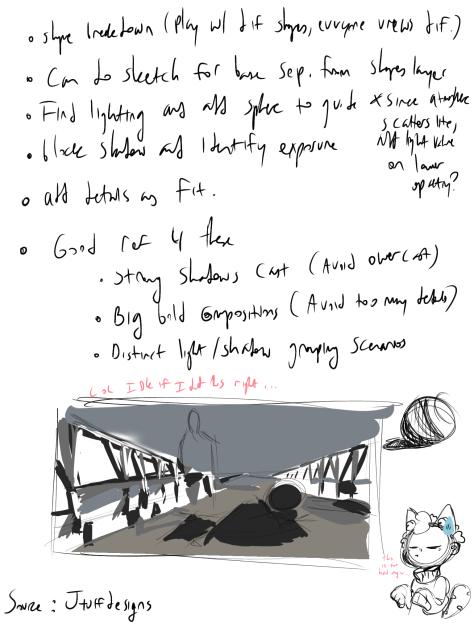 • shape breakdown (play w/ dif shapes, everyone views dif.)
• Can do sketch for base sep. from shapes layer
• Find lighting and add sphere to guide
* since atmosphere scatters lite,
light value
on lower
opacity?
• block shadow and identify exposure
• add details as fit.
• Good ref 4 these
• Strong shadows cast (Avoid overcast)
• Big bold compositions (Avoid too many details)
• Distinct light/shadow grouping scenarios
LOL IDK if I did this right...
this is
Source: Jtuffdesigns